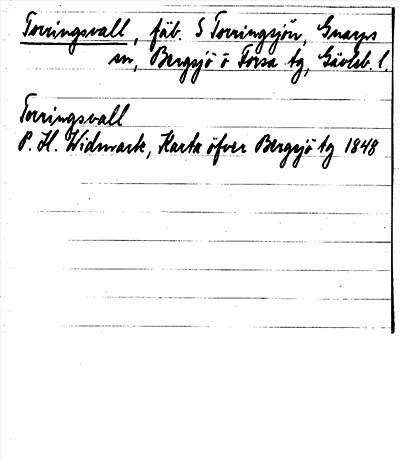 Torringsvall, fäb. S Torringsjön, Gnarps
sn, Bergsjö o Forsa tg, Gävleb. l.
Torringsvall
P. H. Widmark, Karta öfver Bergsjö tg 1848